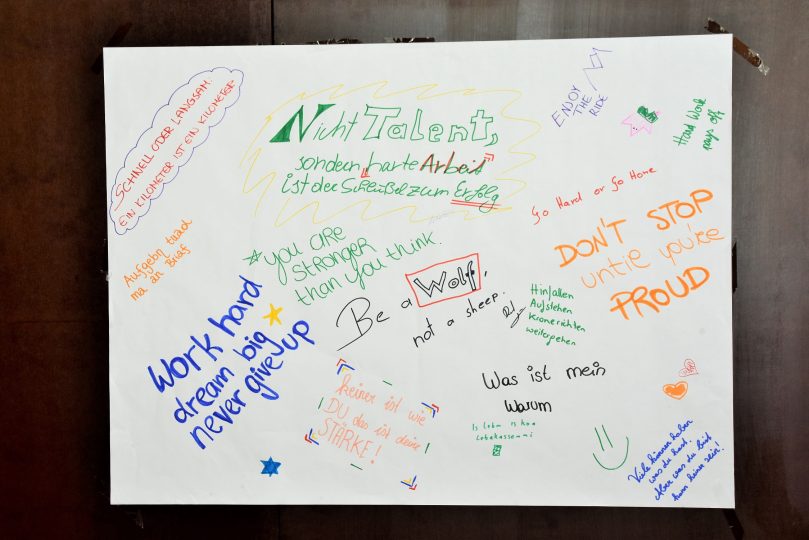 SCHNELL ODER LANGSAM.
EIN KILOMETER IST EIN KILOMETER
Nicht Talent,
sondern harte Arbeit
ist der Schlüßel zum Erfolg
ENJOY
THE
RIDE
Hard Work
pays off
Go Hard or Go Home
Aufgebn tuad
ma an Briaf
*YOU ARE
STRONGER
than you think.
DON'T STOP
until you're
PROUD
Be a Wolf,
not a sheep.
Hinfallen
Aufstehen
Krone richten
weitergehen
Work hard
dream big
never give up
keiner ist wie
DU das ist deine
STÄRKE!
Was ist mein
Warum
Is Lebm is koa
Viele können haben
was du hast.
Aber was du bist
kann keiner sein!